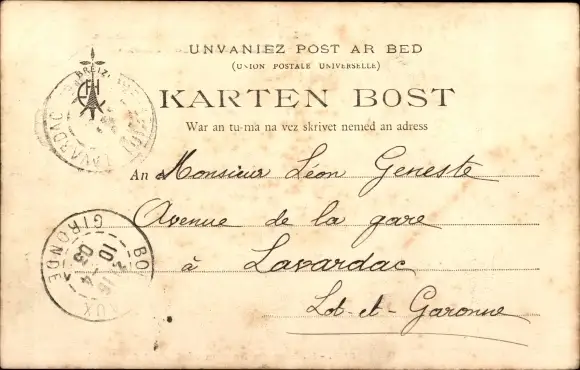 UNVANIEZ POST AR BED
(UNION POSTALE UNIVERSELLE)
KARTEN BOST
War an tu-ma na vez skrivet nemed an adress
An Monsieur Léon Geneste
Avenue de la gare
à Lavardac
Lot-et-Garonne
BREIZ
LAVARDAC
GIRONDE
10